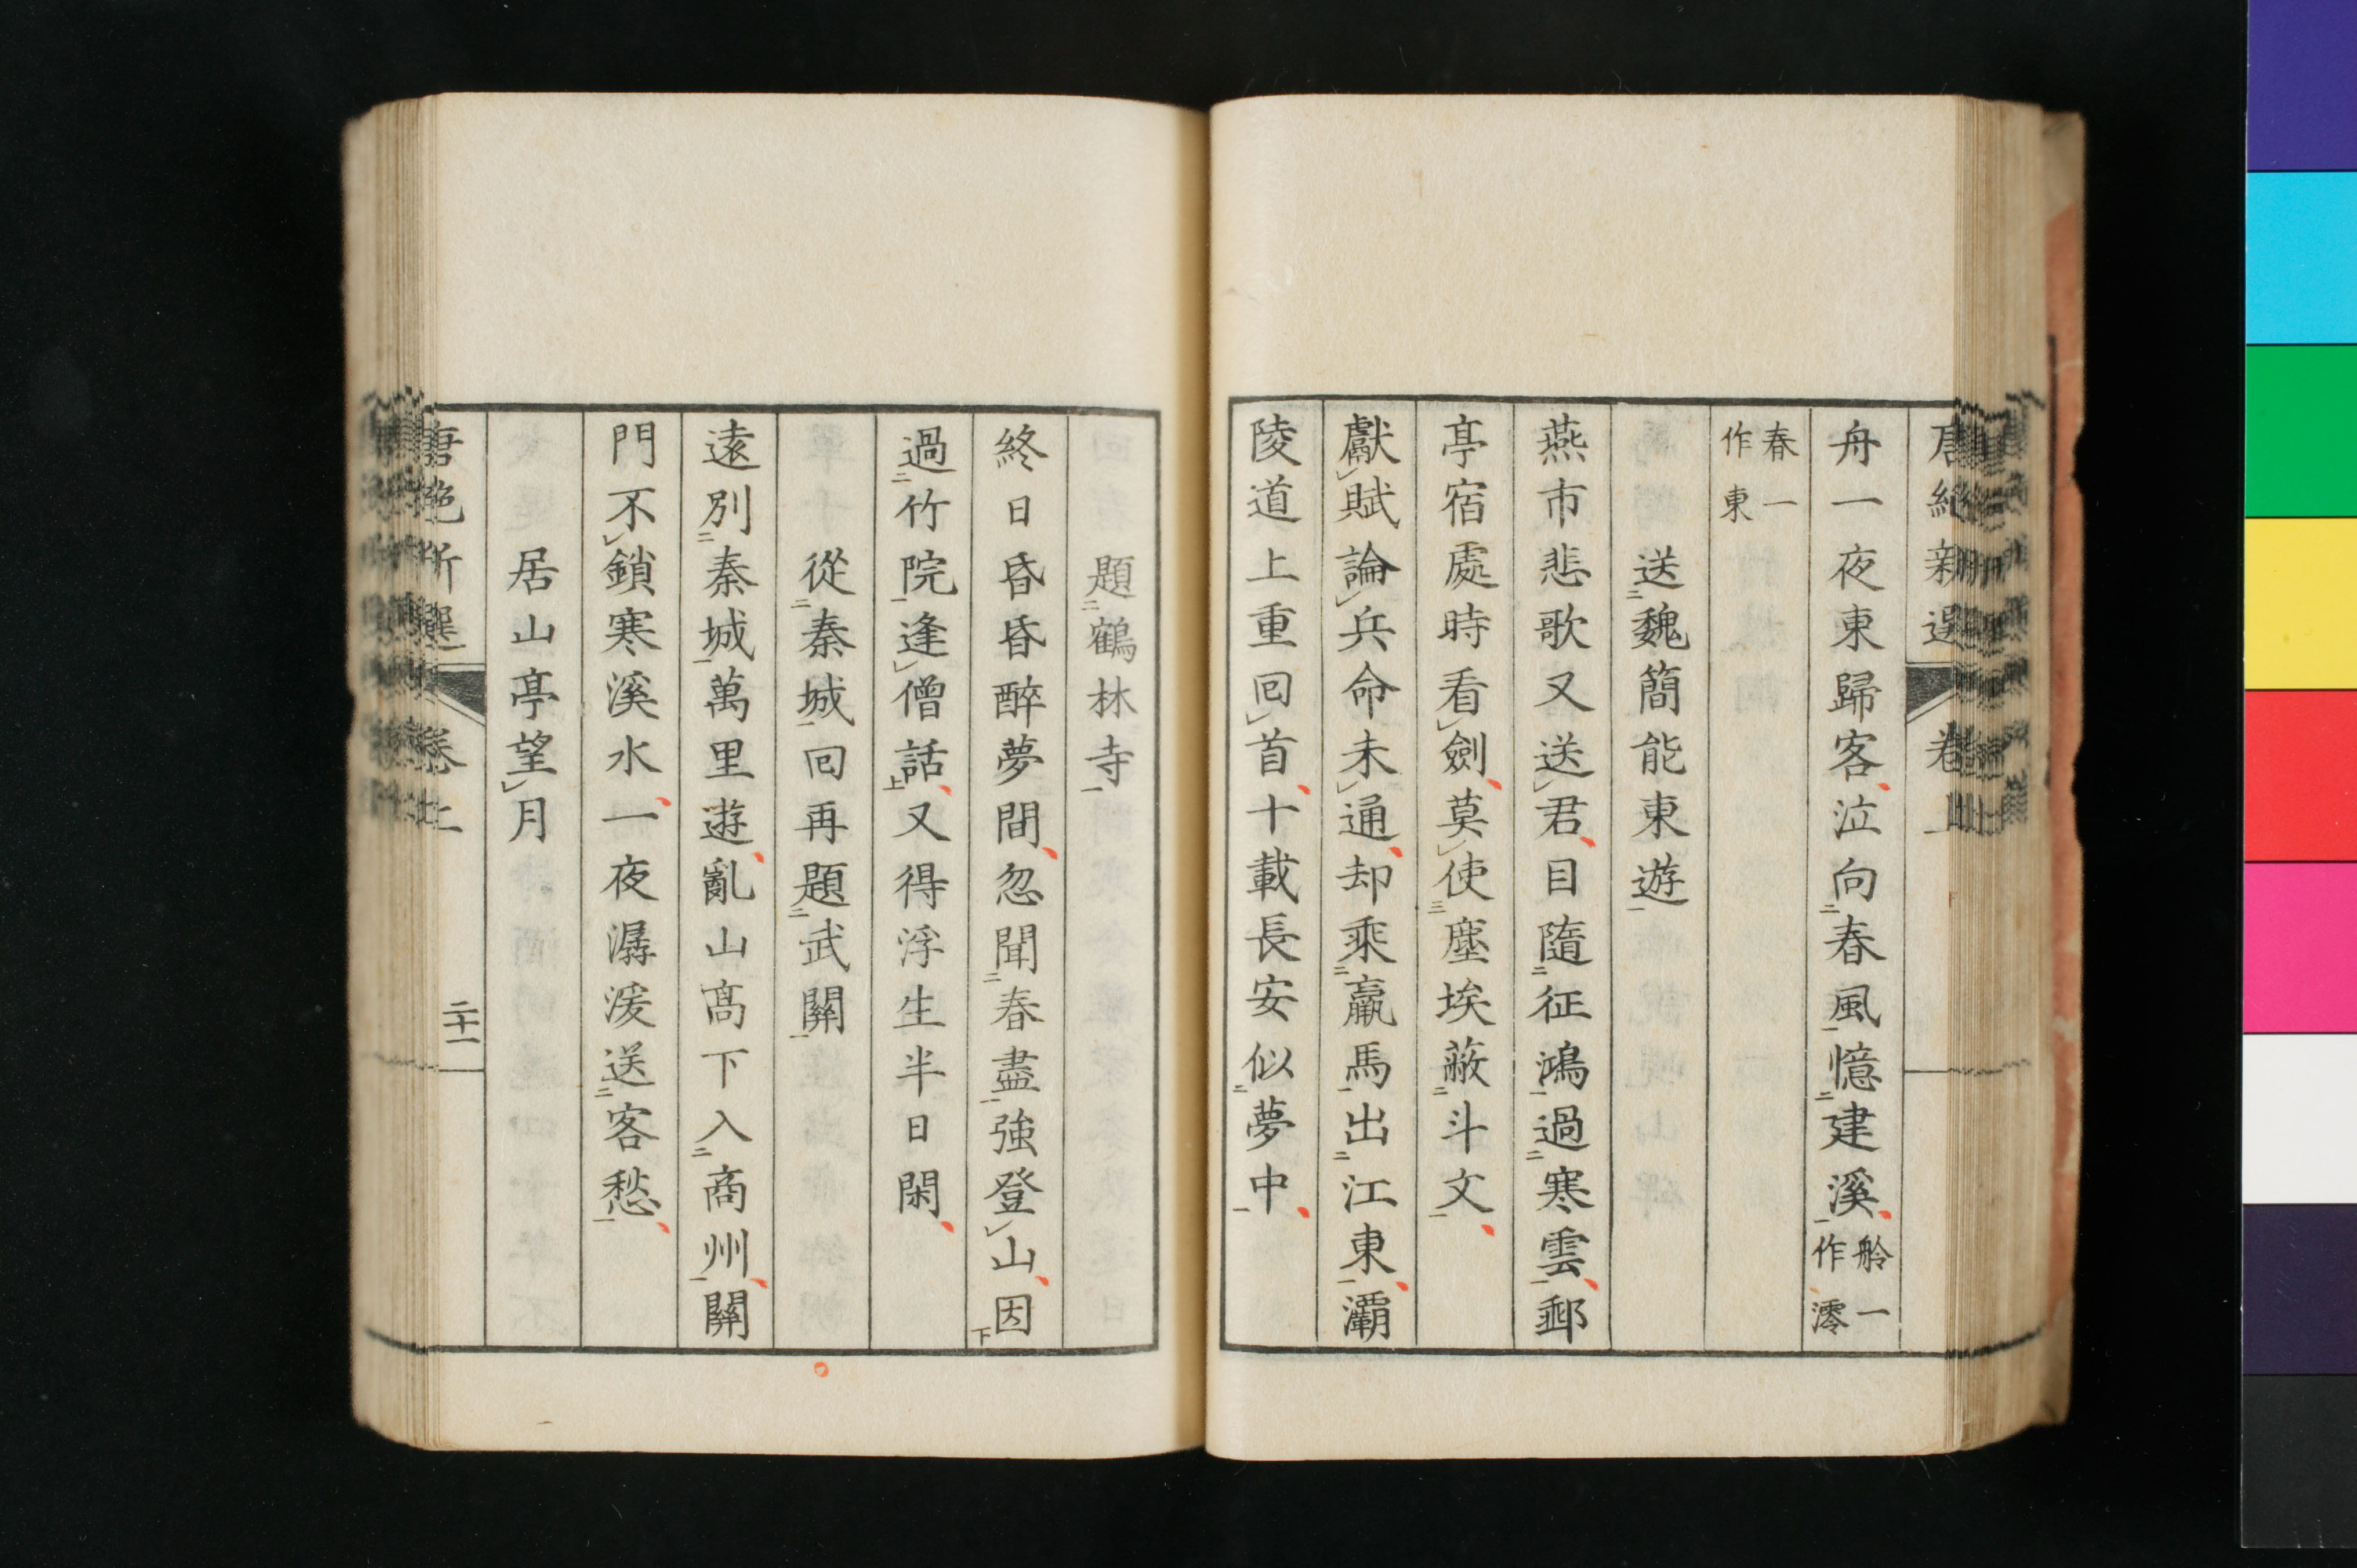 唐絶新選 卷上
舟一夜東歸客泣向春風憶建溪舲一作澪
春一作東
送魏簡能東遊
燕市悲歌又送君目隨征鴻過寒雲郵
亭宿處時看劍莫使塵埃蔽斗文
獻賦論兵命未通却乘羸馬出江東灞
陵道上重回首十載長安似夢中
題鶴林寺
終日昏昏醉夢間忽聞春盡強登山因
過竹院逢僧話又得浮生半日閑
從秦城回再題武關
遠別秦城萬里遊亂山高下入商州關
門不鎖寒溪水一夜潺湲送客愁
居山亭望月
唐絶新選 卷上 二十一